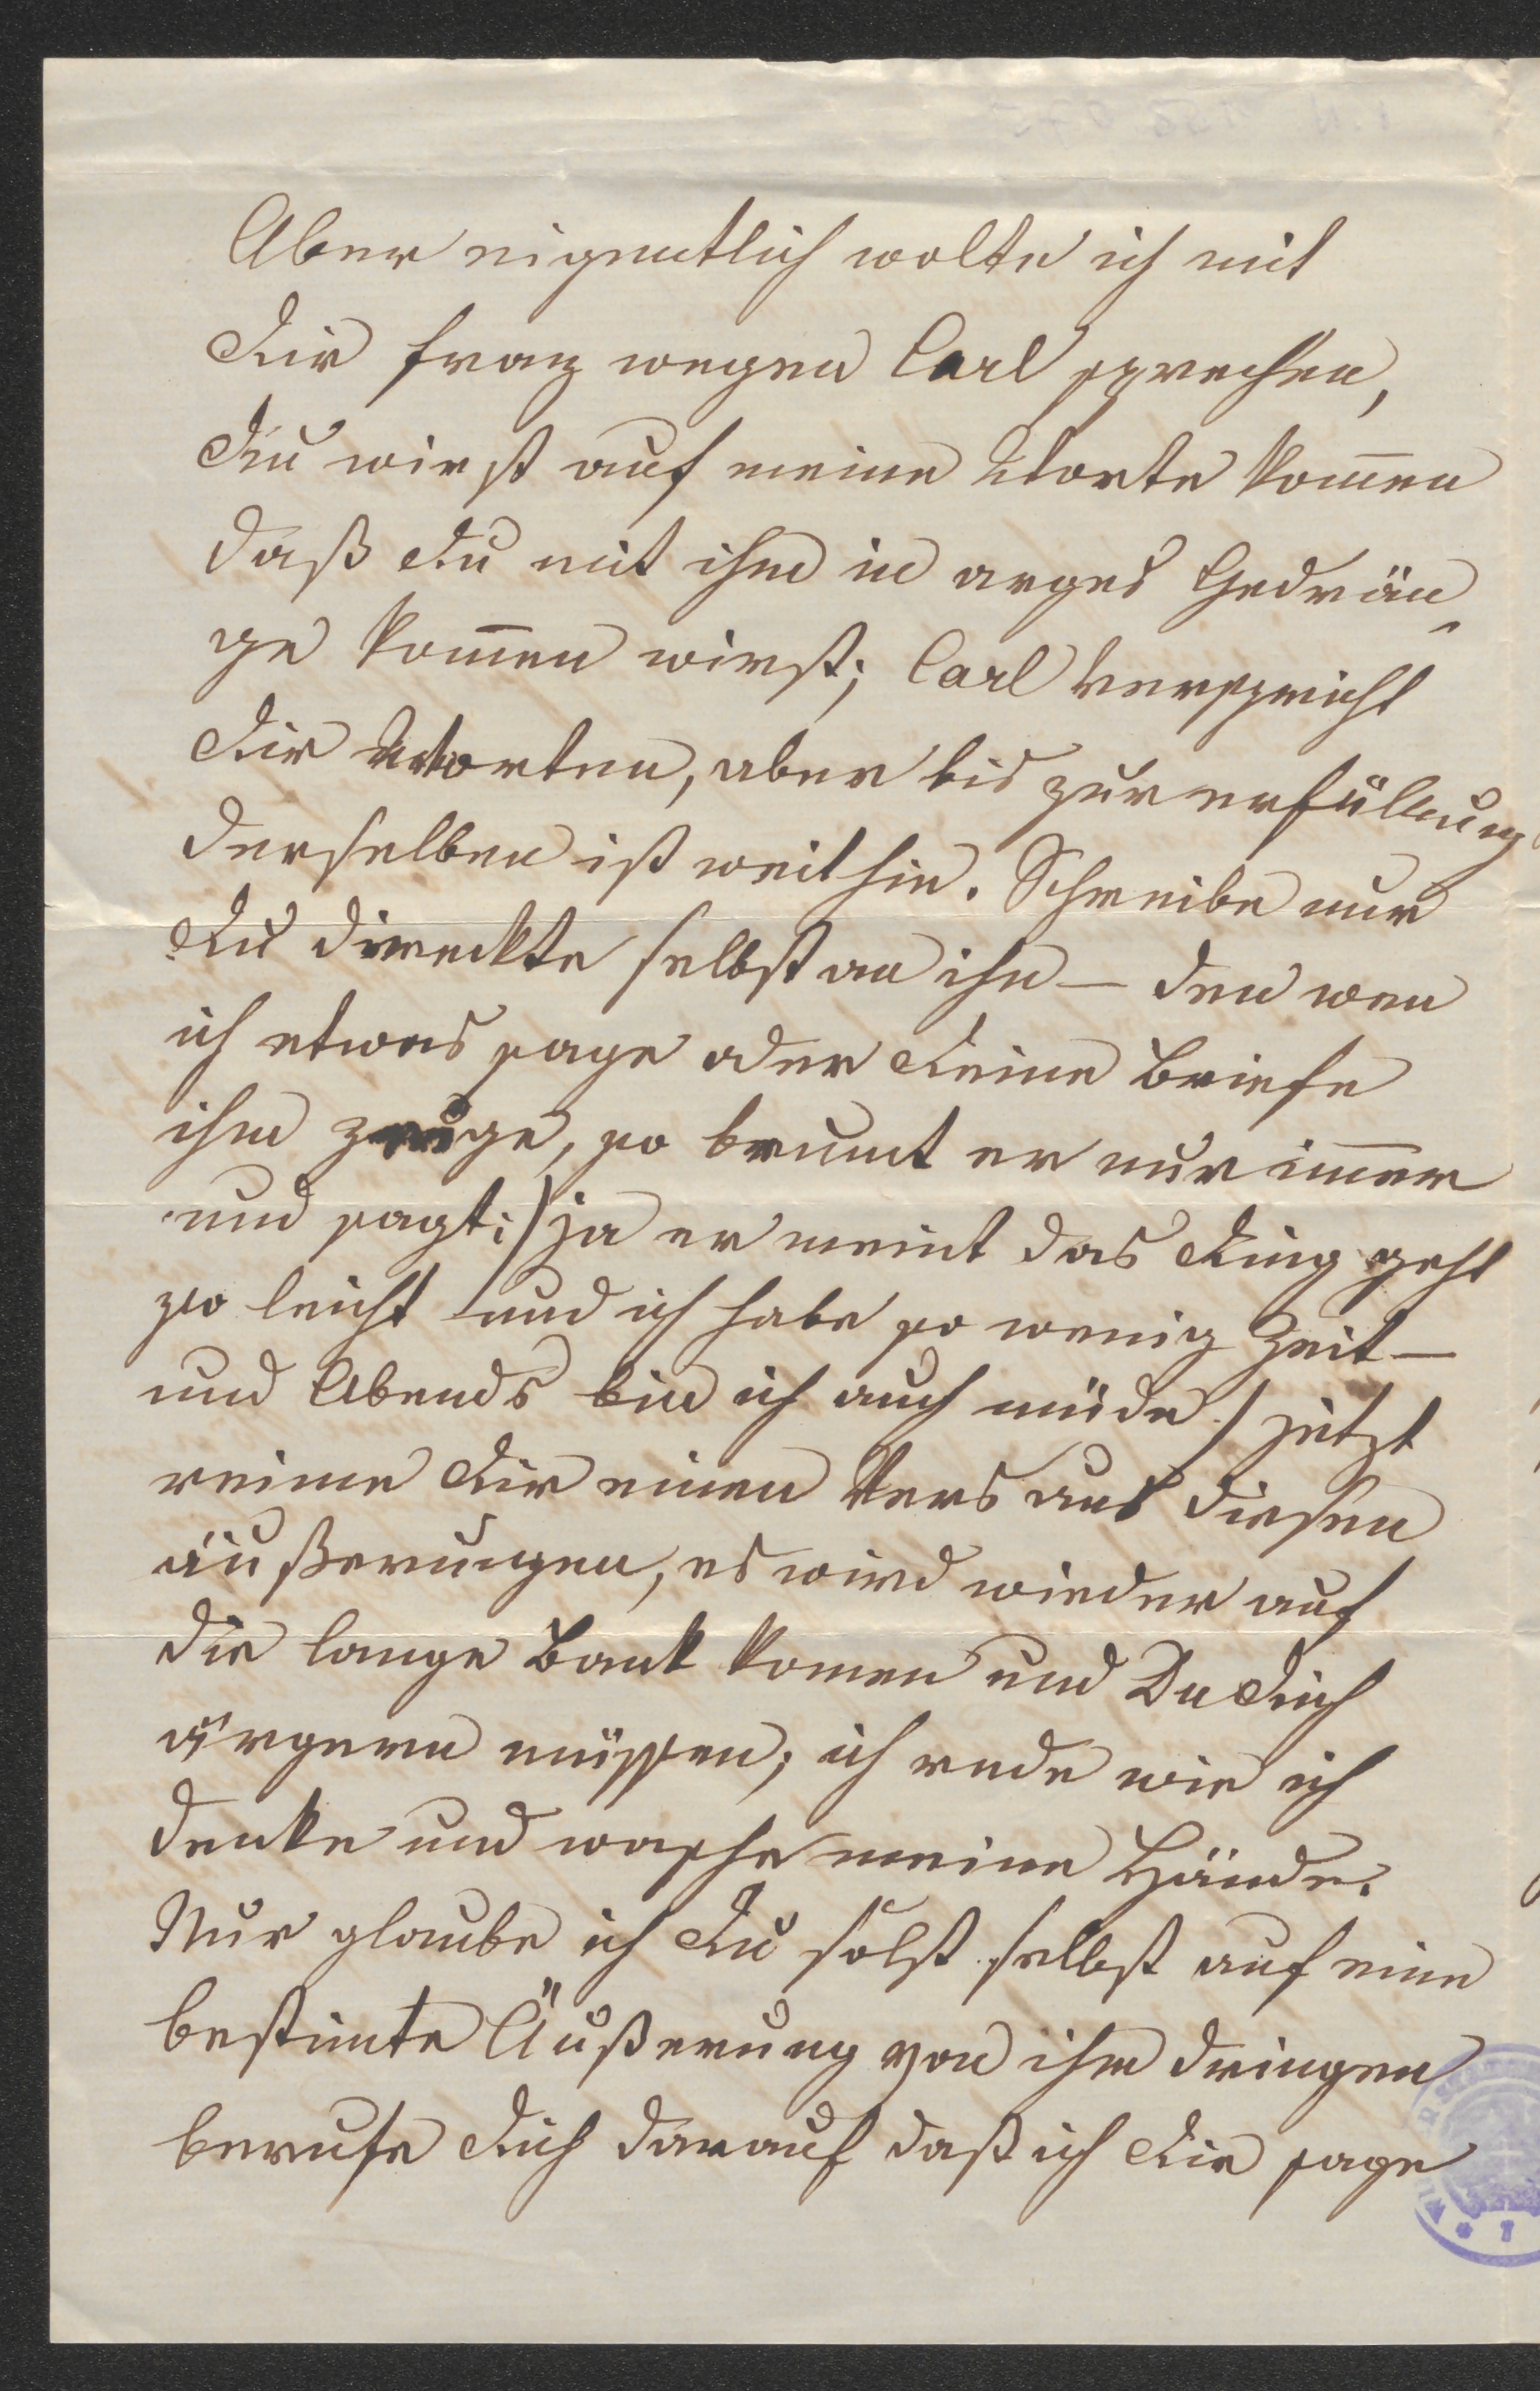 Aber eigentlich wolte ich mit
Dir Franz wegen Carl sprechen,
Du wirst auf meine Worte kom̄en
daß Du mit ihm in arges Gedrän-
ge kom̄en wirst; Carl verspricht
Dir Worten, aber bis zur erfüllung
derselben ist weit hin. Schreibe nur
Du direckte selbst an ihn – den wen
ich etwas sage oder Deine Briefe
ihm zeige, so brumt er nur im̄er
und sagt:) ja er meint das Ding geht
so leicht und ich habe so wenig Zeit –
und Abends bin ich auch müde.) jetzt
reime Dir einen Vers aus diesen
äußerungen, es wird wieder auf
die lange Bank komen und Du Dich
ärgern müssen; ich rede wie ich
denke und wasche meine Hände.
Nur glaube ich Du solst selbst auf eine
bestimte Äußerung von ihm dringen
berufe Dich darauf daß ich Dir sage